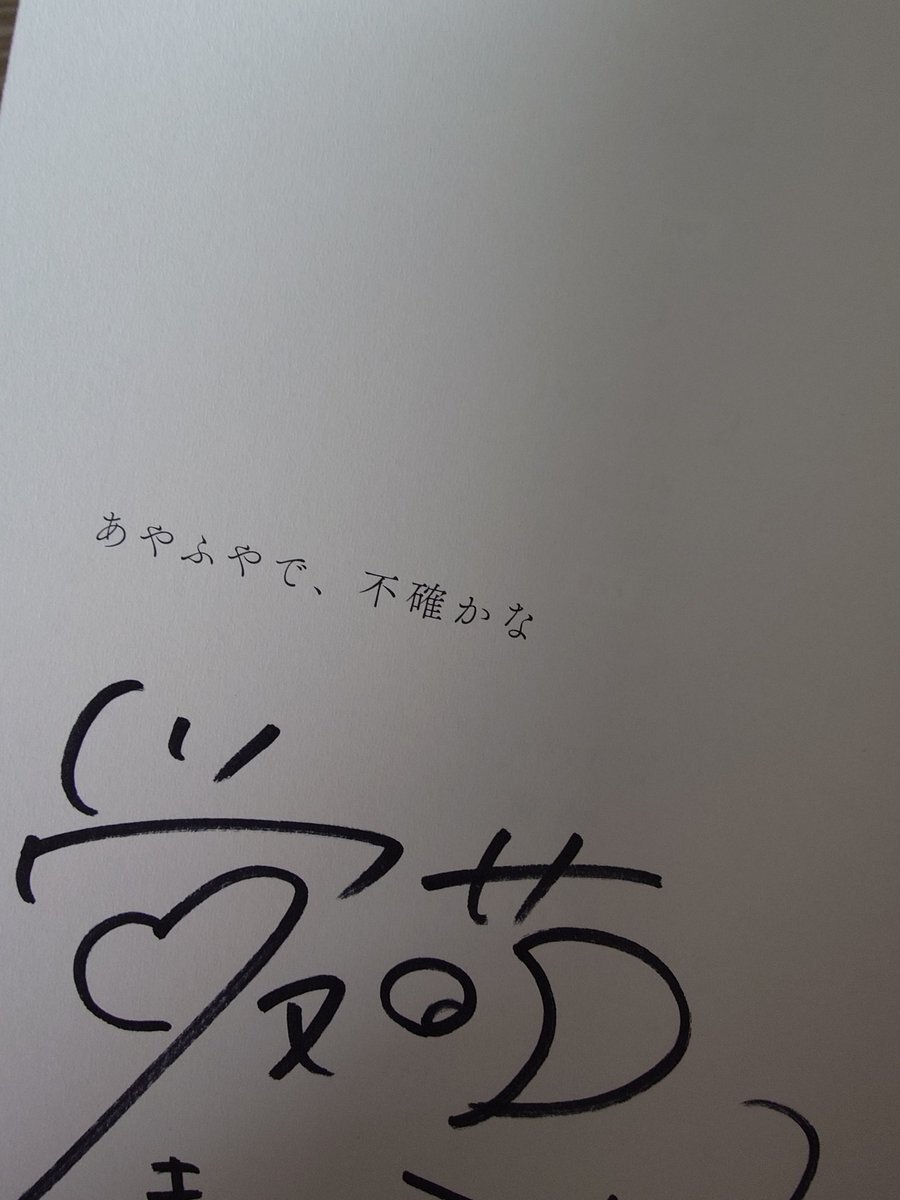 あやふやで、不確かな
愛萌